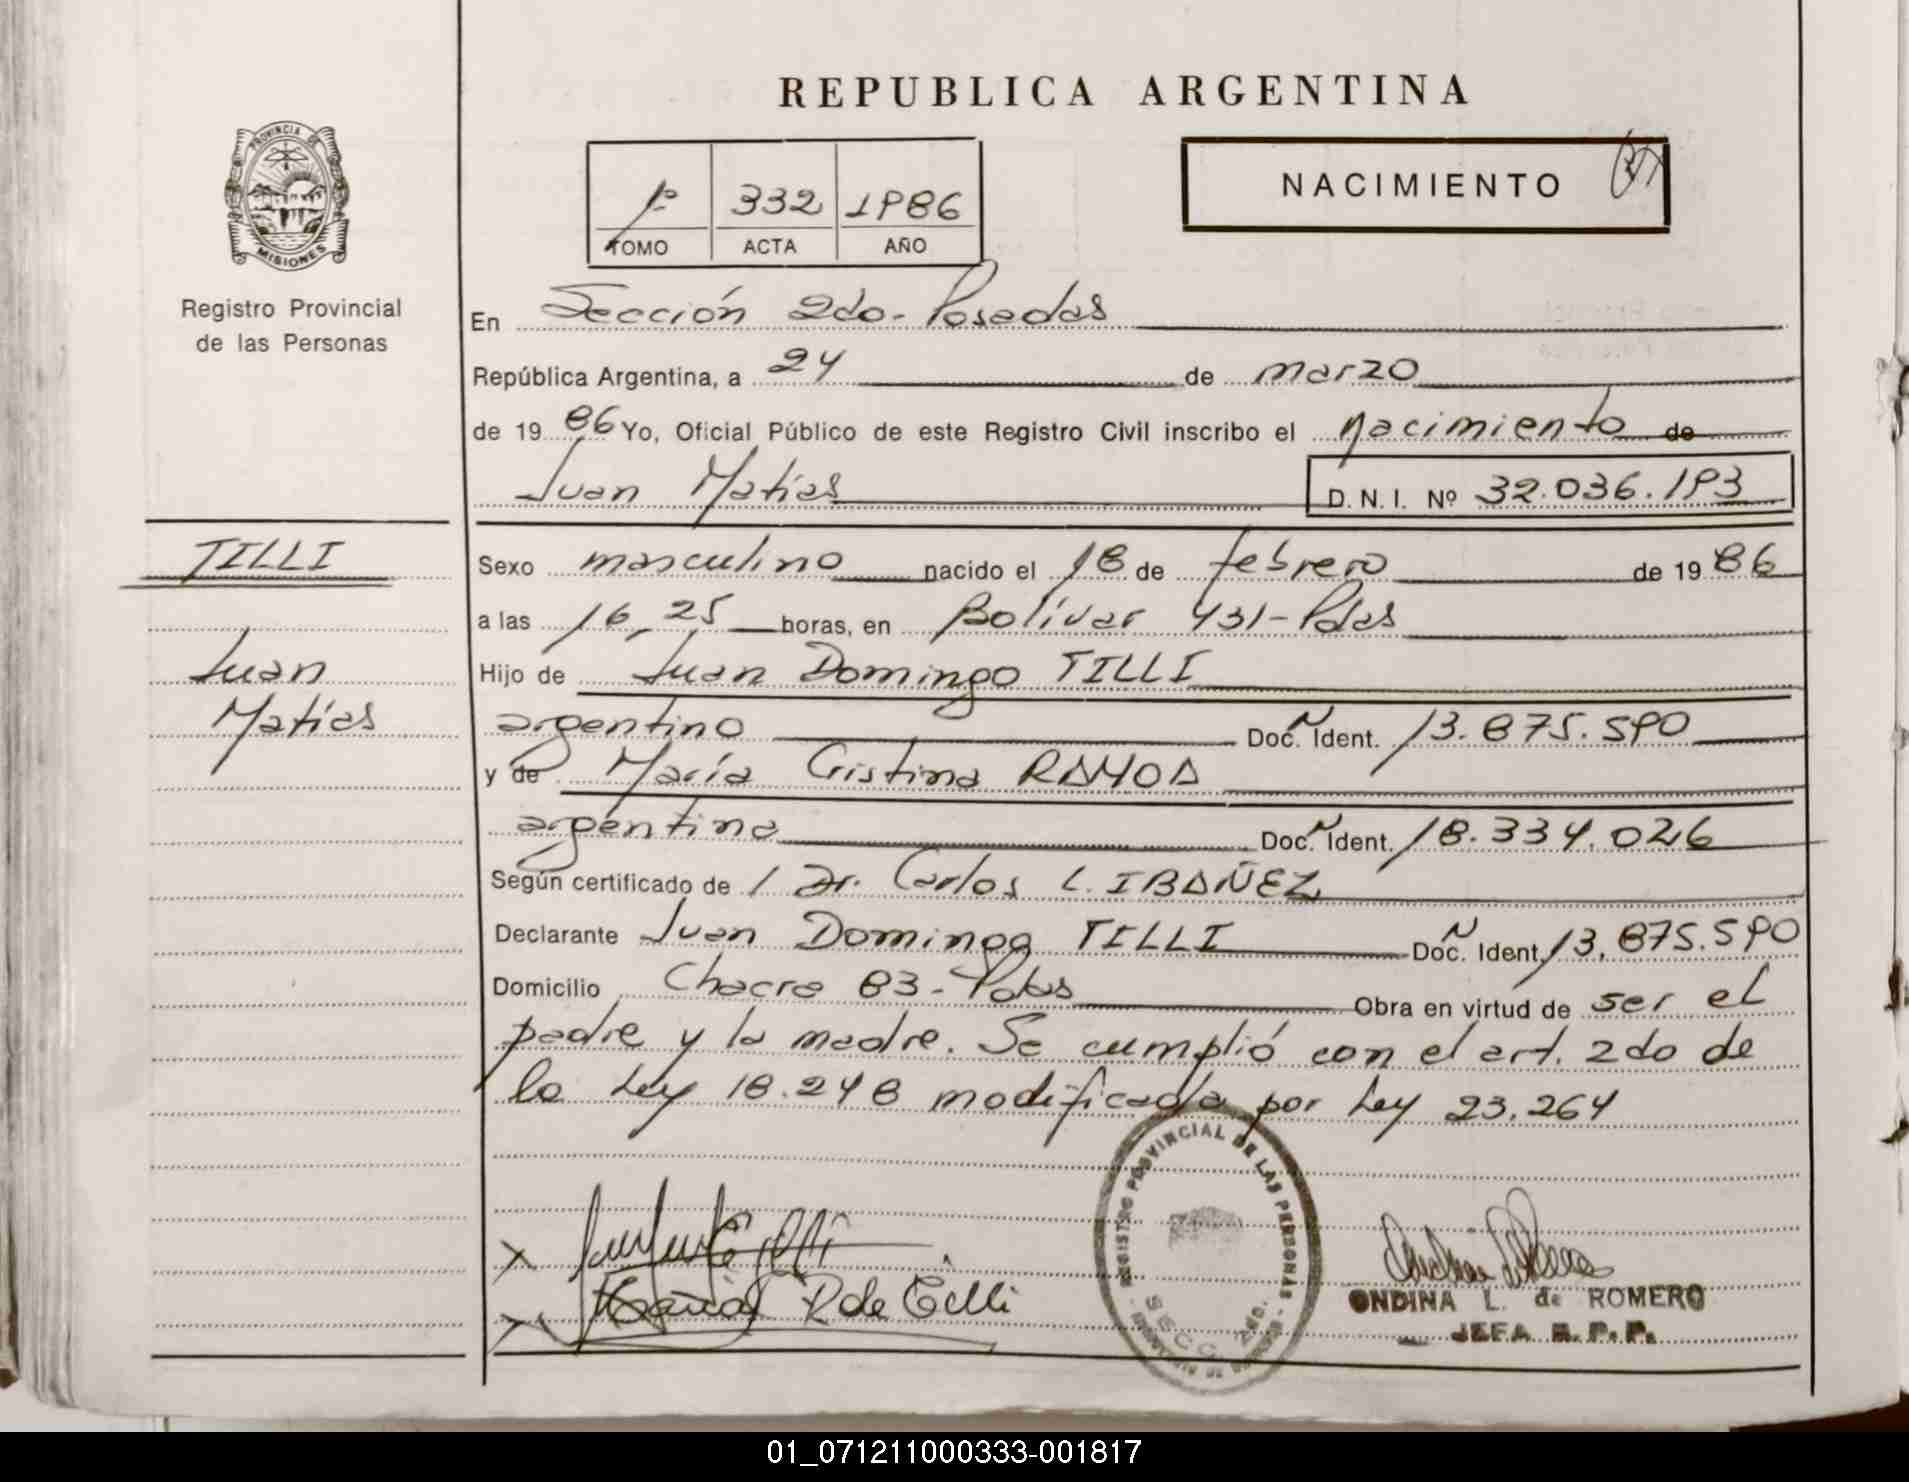 REPUBLICA ARGENTINA
PROVINCIA DE
MISIONES
Registro Provincial
de las Personas
1º 332 1986
TOMO ACTA AÑO
NACIMIENTO
En Sección 2do- Posadas
República Argentina, a 24 de marzo
de 19 86 Yo, Oficial Público de este Registro Civil inscribo el nacimiento de
Juan Matías D.N.I. Nº 32.036.193
TILLI
Juan
Matías
Sexo masculino nacido el 18 de febrero de 19 86
a las 16,25 horas, en Bolívar 431-Pdas
Hijo de Juan Domingo TILLI
argentino Doc. Ident. 13.875.590
y de María Cristina RAMOA
argentina Doc. Ident. 18.334.026
Según certificado de / Dr. Carlos L. IBAÑEZ
Declarante Juan Domingo TILLI Doc. Ident. 13.875.590
Domicilio Chacra 83-Pdas Obra en virtud de ser el
padre y la madre. Se cumplió con el art. 2do de
la Ley 18.248 modificada por Ley 23.264
REGISTRO PROVINCIAL DE LAS PERSONAS
SECC. 2da.
X
X R de Tilli
ONDINA L. de ROMERO
JEFA R. P. P.
01_071211000333-001817